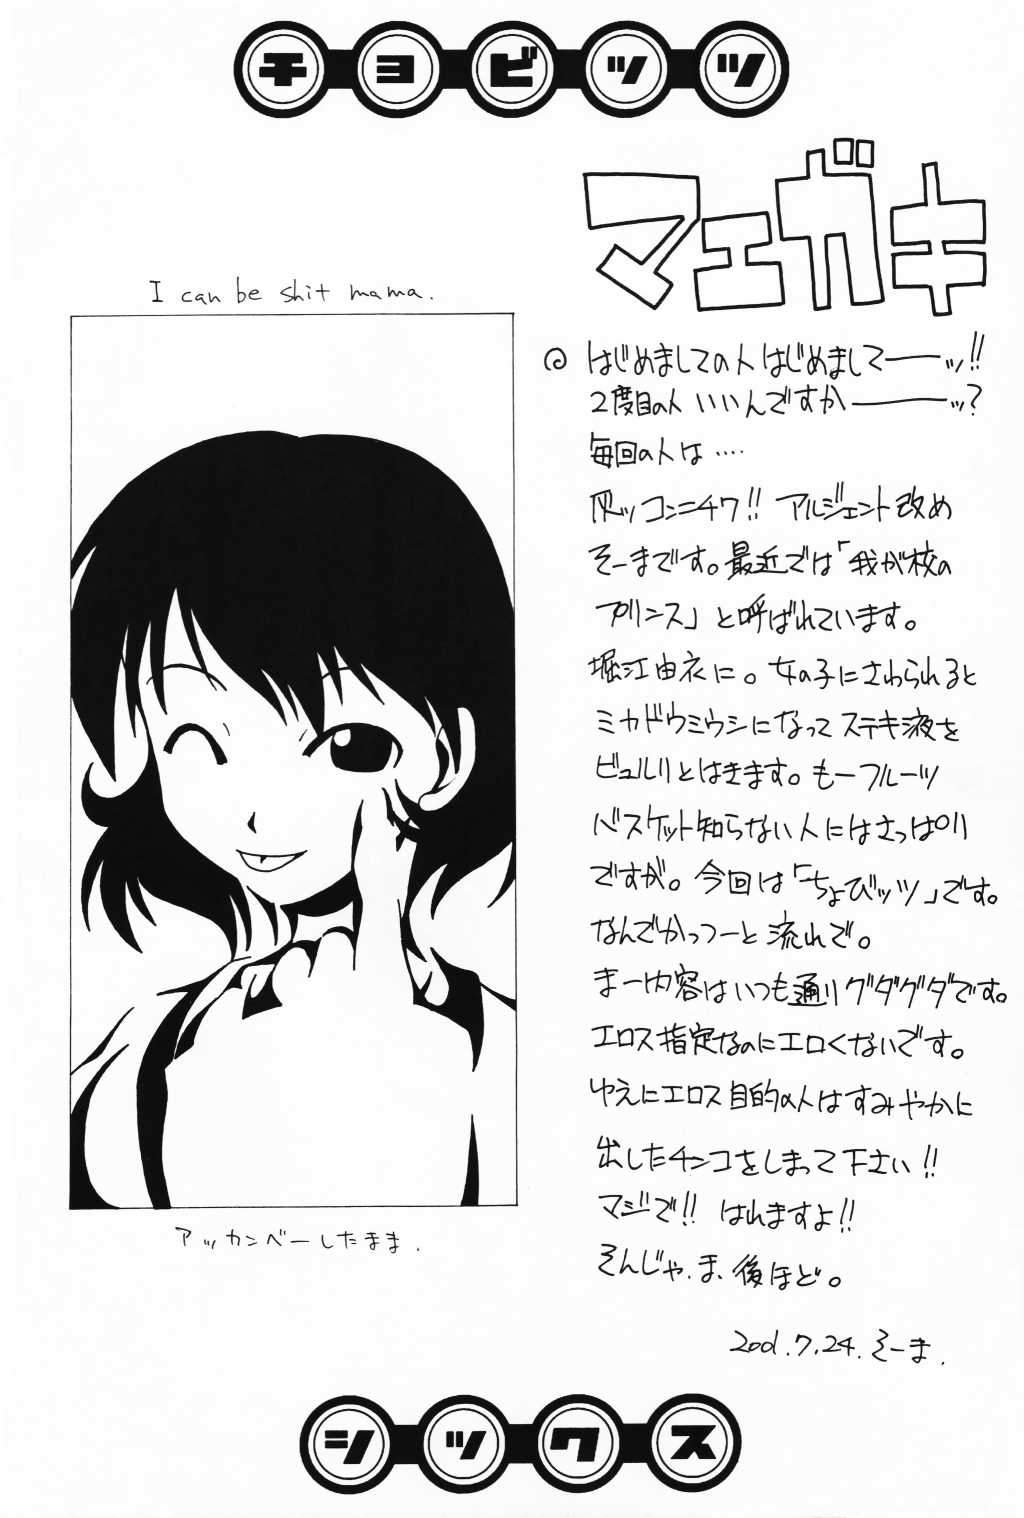 チョビッツ
マエガキ
I can be shit mama.
はじめましての人はじめましてーッ!!
2度目の人 いいんですかーッ?
毎回の人は‥‥
灰ッコンニチワ!! アルジェント改め
そーまです。最近では「我が校の
プリンス」と呼ばれています。
堀江由衣に。女の子にさわられると
ミカドウミウシになってステキ液を
ビュルリとはきます。もーフルーツ
バスケット知らない人にはさっぱり
ですが。今回は「ちょびッツ」です。
なんでかっつーと流れで。
まー内容はいつも通りグダグダです。
エロス指定なのにエロくないです。
ゆえにエロス目的の人はすみやかに
出したチンコをしまって下さい!!
マジで!! はれますよ!!
そんじゃ、ま、後ほど。
2001.7.24.そーま.
アッカンベーしたまま.
シックス